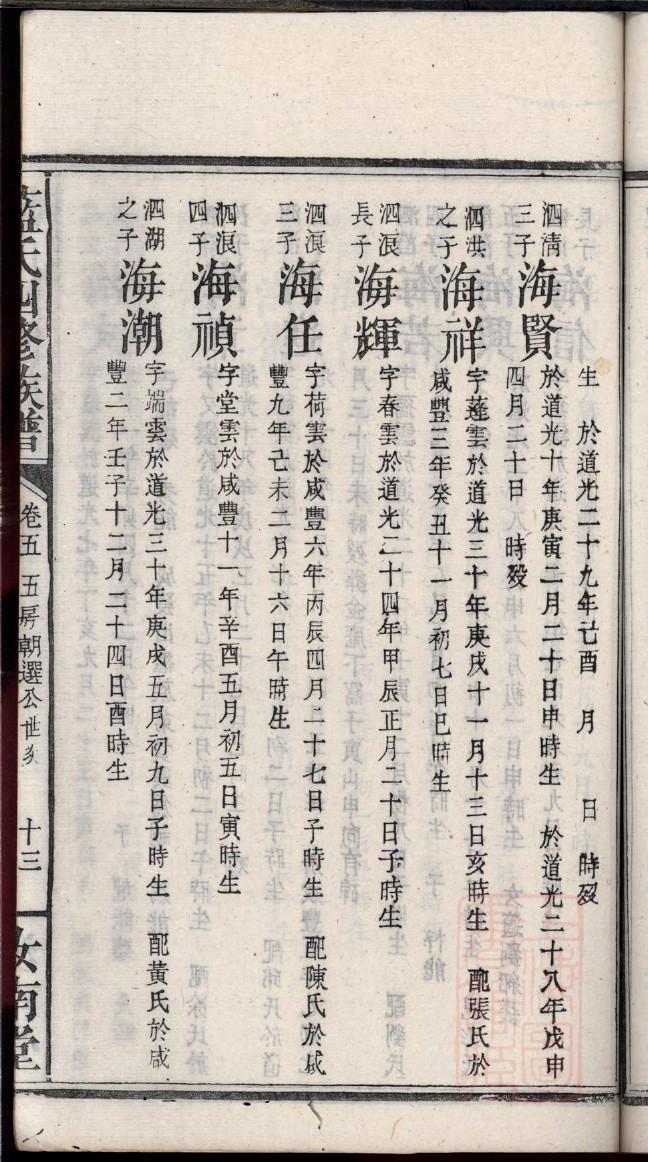 生　於道光二十九年己酉　月　日　時歿
泗淸三子 海賢 於道光十年庚寅二月二十日申時生　於道光二十八年戊申
四月二十日　時歿
泗洪之子 海祥 字蓬雲於道光三十年庚戌十一月十三日亥時生　配張氏於
咸豐三年癸丑十一月初七日巳時生
泗浪長子 海輝 字春雲於道光二十四年甲辰正月二十日子時生
泗浪三子 海任 字荷雲於咸豐六年丙辰四月二十七日子時生　配陳氏於咸
豐九年己未二月十六日午時生
泗浪四子 海禎 字堂雲於咸豐十一年辛酉五月初五日寅時生
泗湖之子 海潮 字端雲於道光三十年庚戌五月初九日子時生　配黃氏於咸
豐二年壬子十二月二十四日酉時生
藍氏四修族譜　卷五　五房朝選公世系　十三　汝南堂